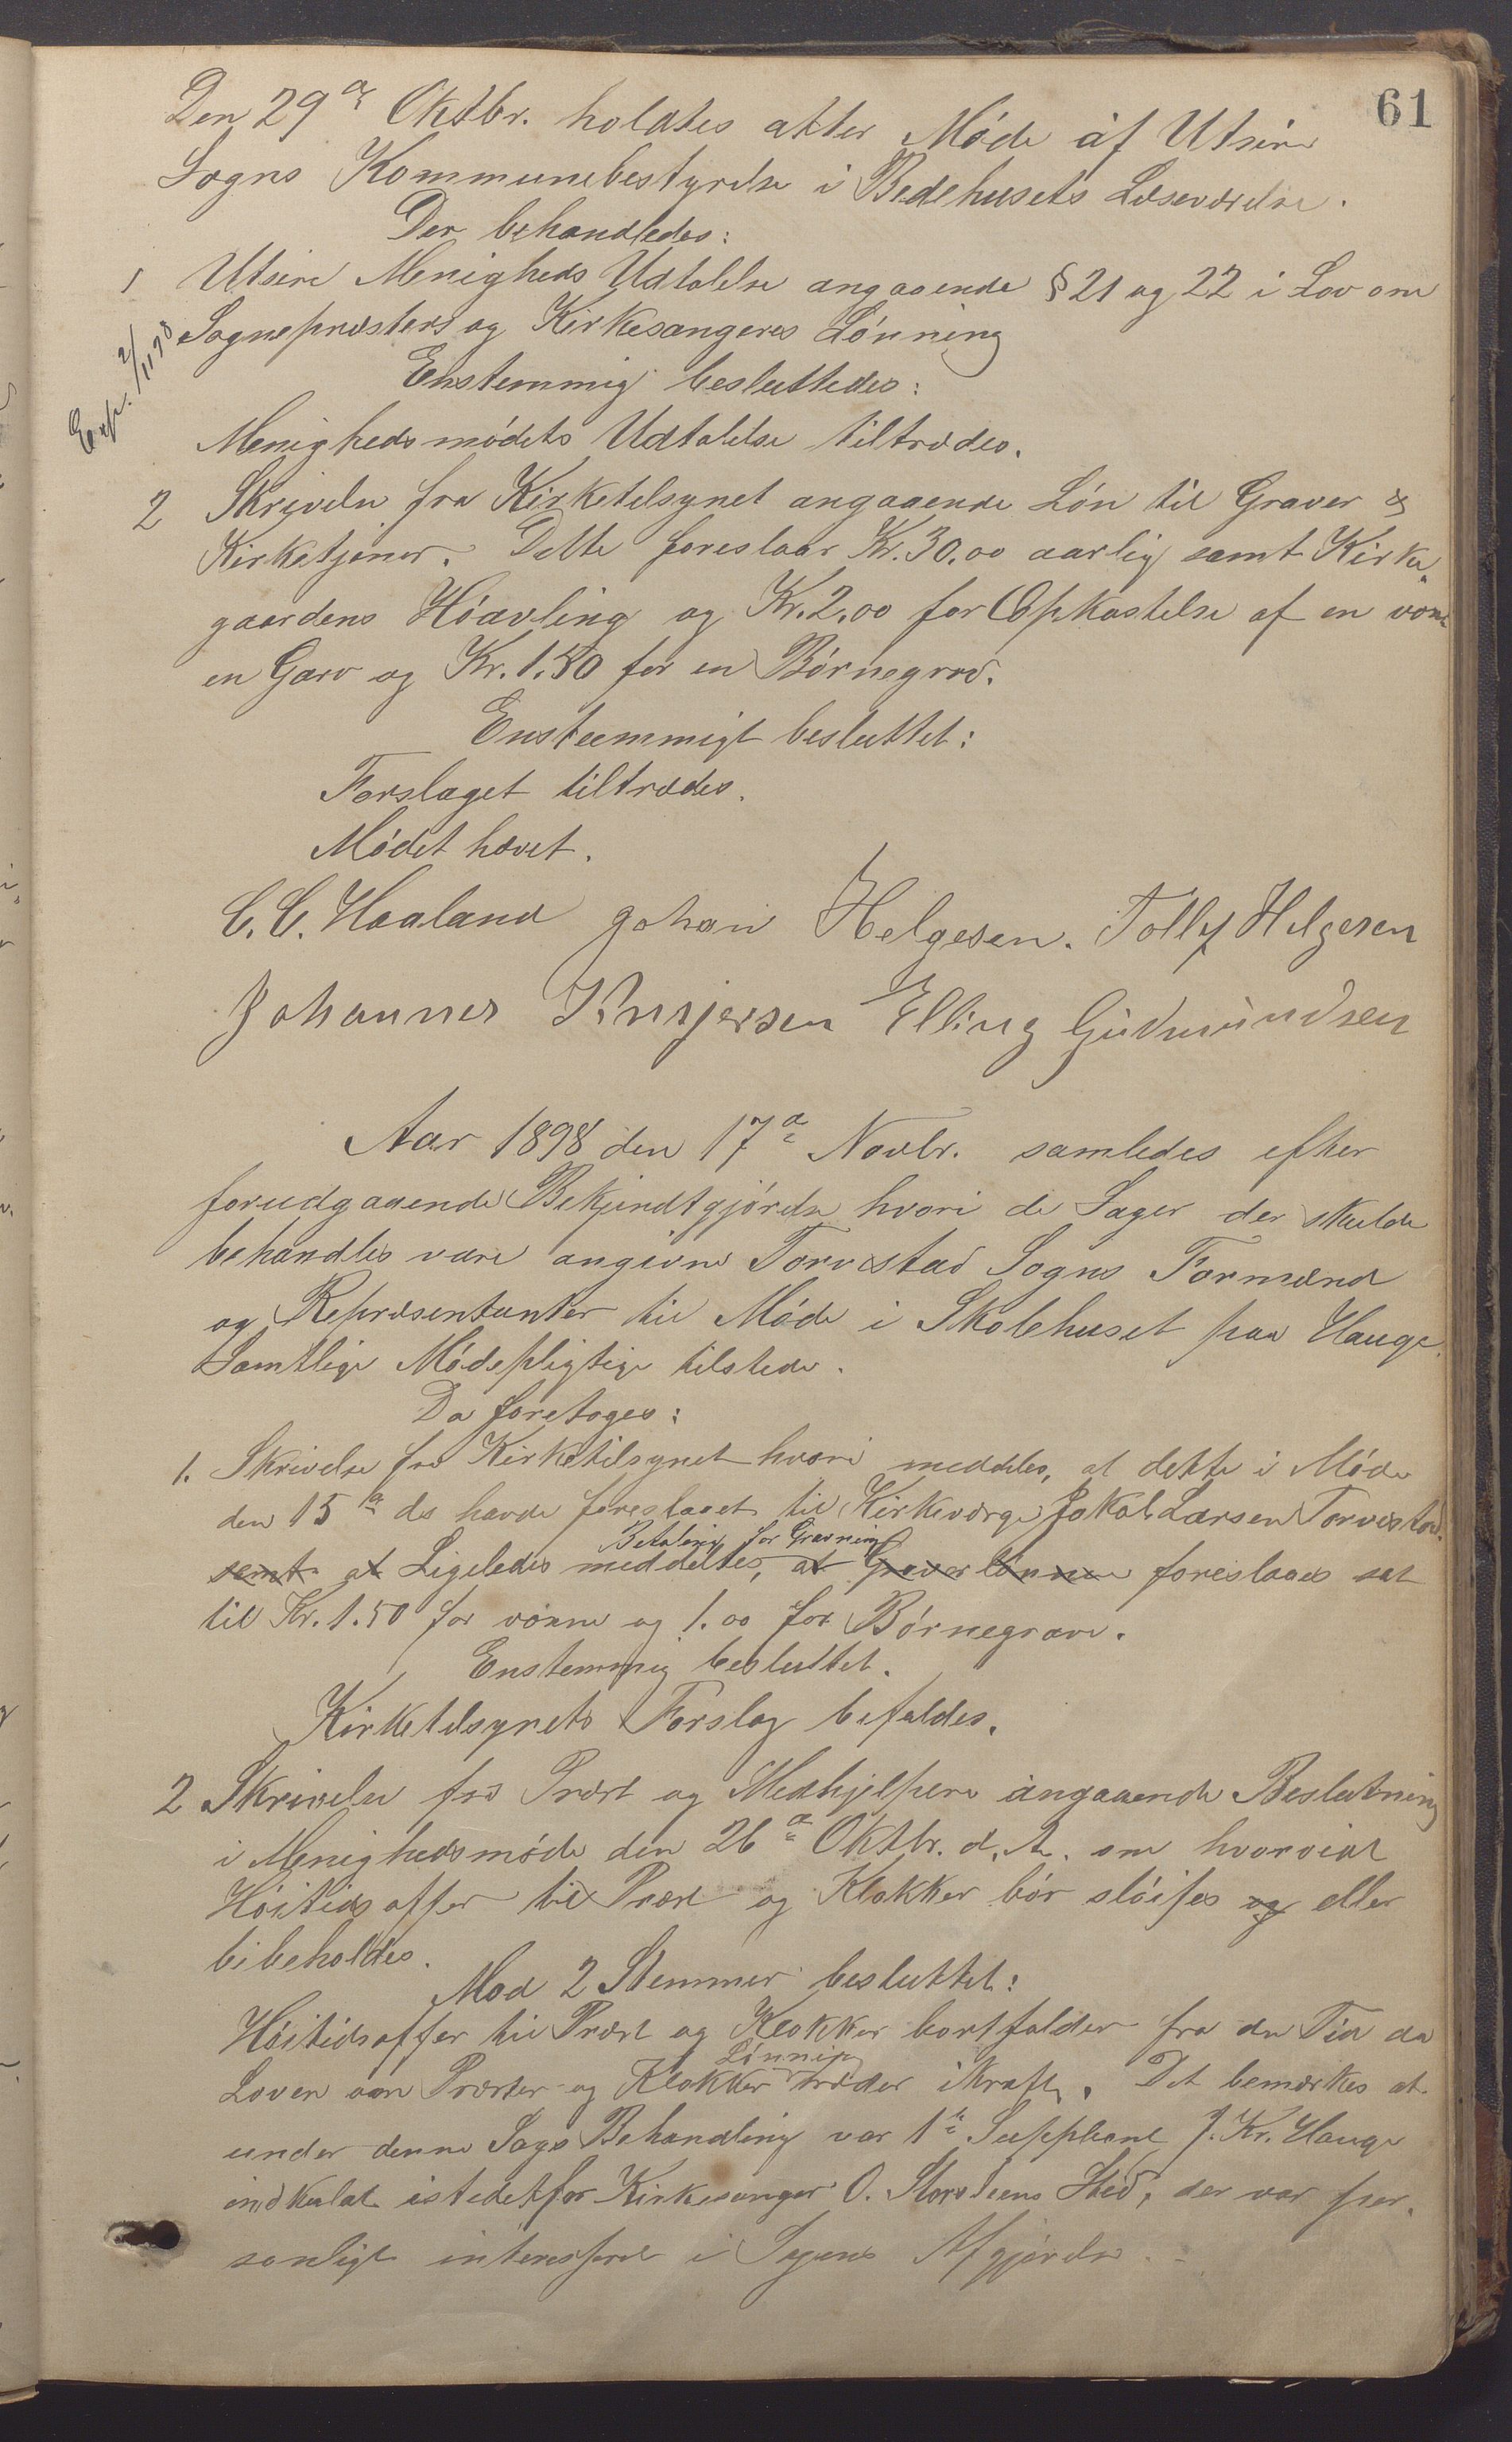 61
Den 29de Oktbr. holdtes atter Møde af Utsire
Sogns Kommunebestyrelse i Bedehusets Læseværelse.
Der behandledes:
1 Utsire Menigheds Udtalelse angaaende § 21 og 22 i Lov om
Sognepræsters og Kirkesangeres Lønning
Exp. 2/11 98
Enstemmig besluttedes:
Menighedsmødets Udtalelse tiltrædes.
2 Skrivelse fra Kirketilsynet angaaende Løn til Graver &
Kirketjener. Dette foreslaar Kr. 30.00 aarlig samt Kirke„
gaardens Høavling og Kr. 2.00 for Opkastelse af en voks
en Garv og Kr. 1.50 for en Børnegrav.
Enstemmigt besluttet:
Forslaget tiltrædes.
Mødet hævet.
C. C. Haaland Johan Helgesen. Tollef Helgesen
Johannes Elling Gudmundsen
Aar 1898 den 17de Novbr. samledes efter
forudgaaende Bekjendtgjørelse hvori de Sager der skulde
behandles vare angivne Torvestad Sogns Formænd
og Repræsentanter til Møde i Skolehuset paa Hauge.
Samtlige Mødepligtige tilstede.
Da foretoges:
1. Skrivelse fra Kirketilsynet hvori meddeles, at dette i Møde
den 15de ds havde foreslaaet til Kirkeværge Jakob Larsen Torvestad.
Betaling for Gravning
samt at Ligeledes meddeltes, at Graverlønnen foreslaaes sat
til Kr. 1.50 for voxne og 1.00 for Børnegrave.
Enstemmig besluttet.
Kirketilsynets Forslag bifaldes.
2 Skrivelse fra Præst og Medhjelpere angaaende Beslutning
i Menighedsmøde den 26de Oktbr. d. A. om hvorvidt
Høitidsoffer til Præst og Klokker bør sløifes og eller
bibeholdes.
Mod 2 Stemmer besluttet:
Høitidsoffer til Præst og Klokker bortfalder fra den Tid da
Lønning
Loven om Præster og Klokker træder ikraft. Det bemærkes at
under denne Sags Behandling var 1ste Suppleant J. Kr. Hauge
indkaldt istedetfor Kirkesanger O. Storesteens Sted, der var per„
sonligt interesseret i Sagens Afgjørelse.